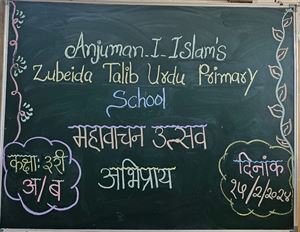 Anjuman-I-Islam's
Zubeida Talib Urdu Primary
School
महावाचन उत्सव
अभिप्राय
कक्षा: ३री
अ/ब
दिनांक
२५/२/२०२४